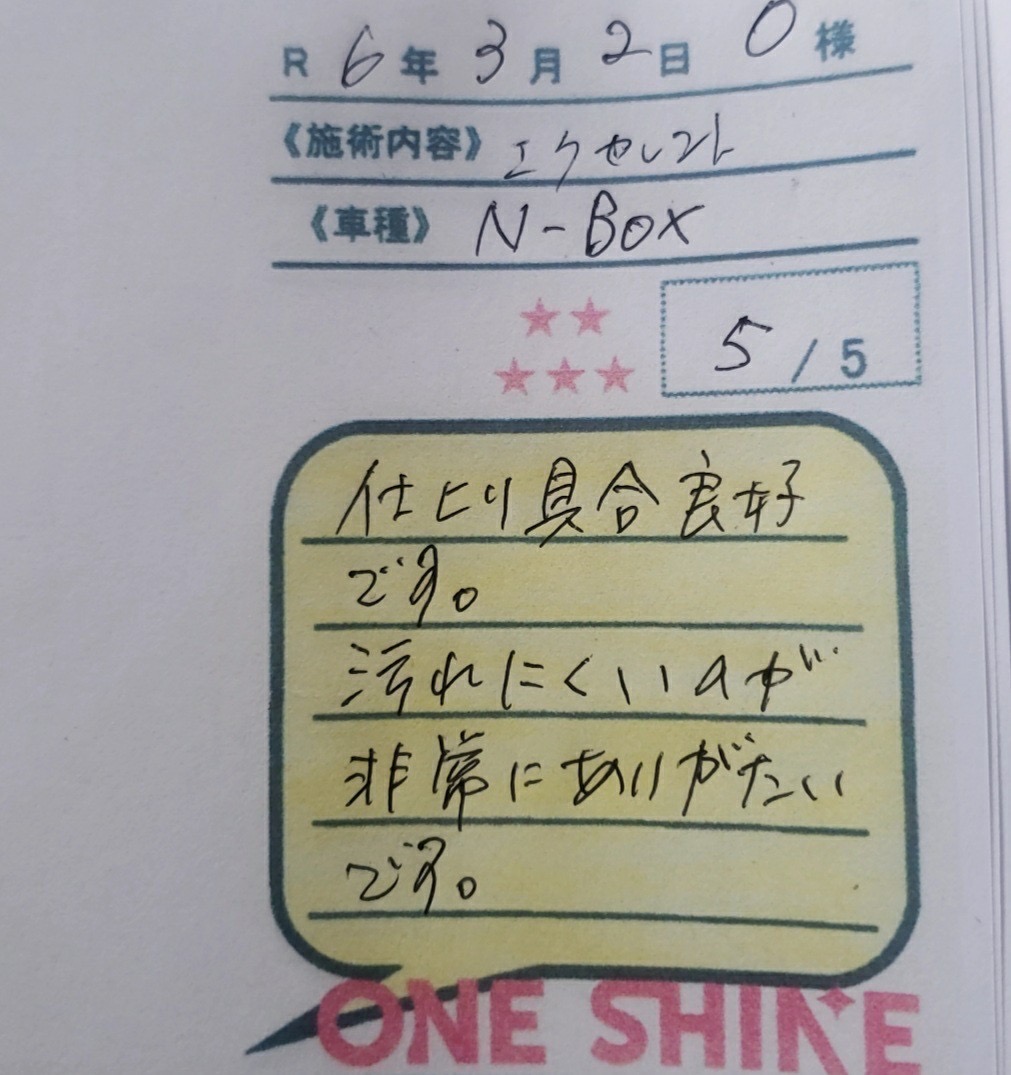 R 6年 3月 2日 O様
《施術内容》エクセレント
《車種》N-BOX
5/5
仕上り具合良好
です。
汚れにくいのが
非常にありがたい
です。
ONE SHINE